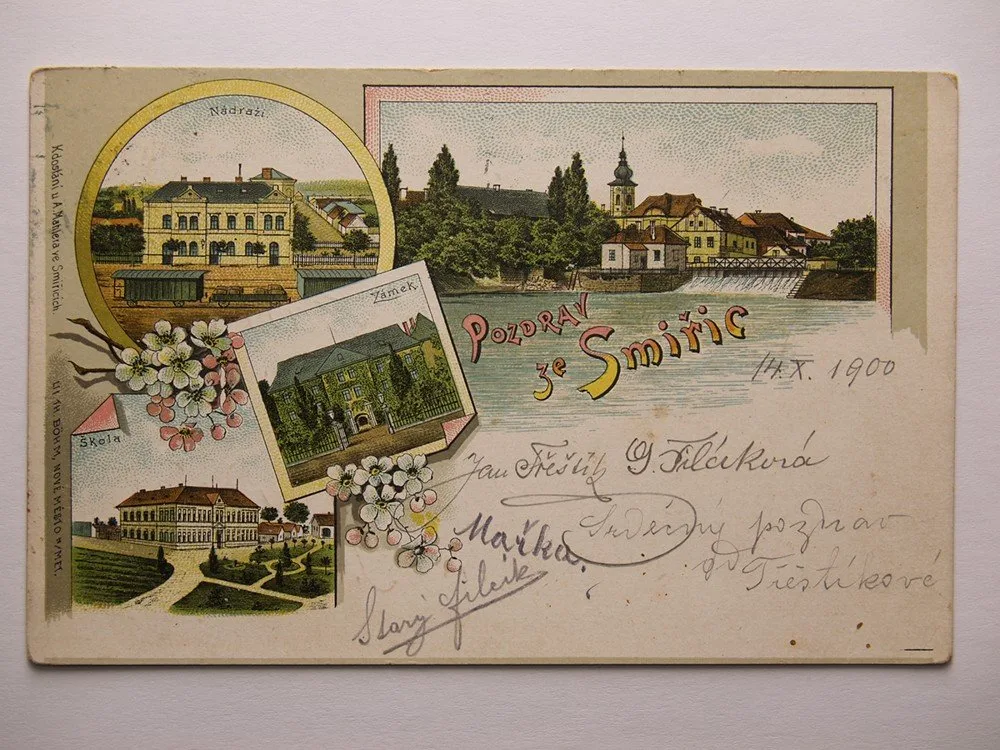 Nádraží
Zámek
Škola
Pozdrav
ze Smiřic
14.X. 1900
Jan Třeštík G. Filčáková
Srdečný pozdrav
od Třeštíkové
Mařka.
Starý filčík
K dostání u A. Mañera ve Smiřicích.
BÖHM, NOVÉ MĚSTO n/MET.